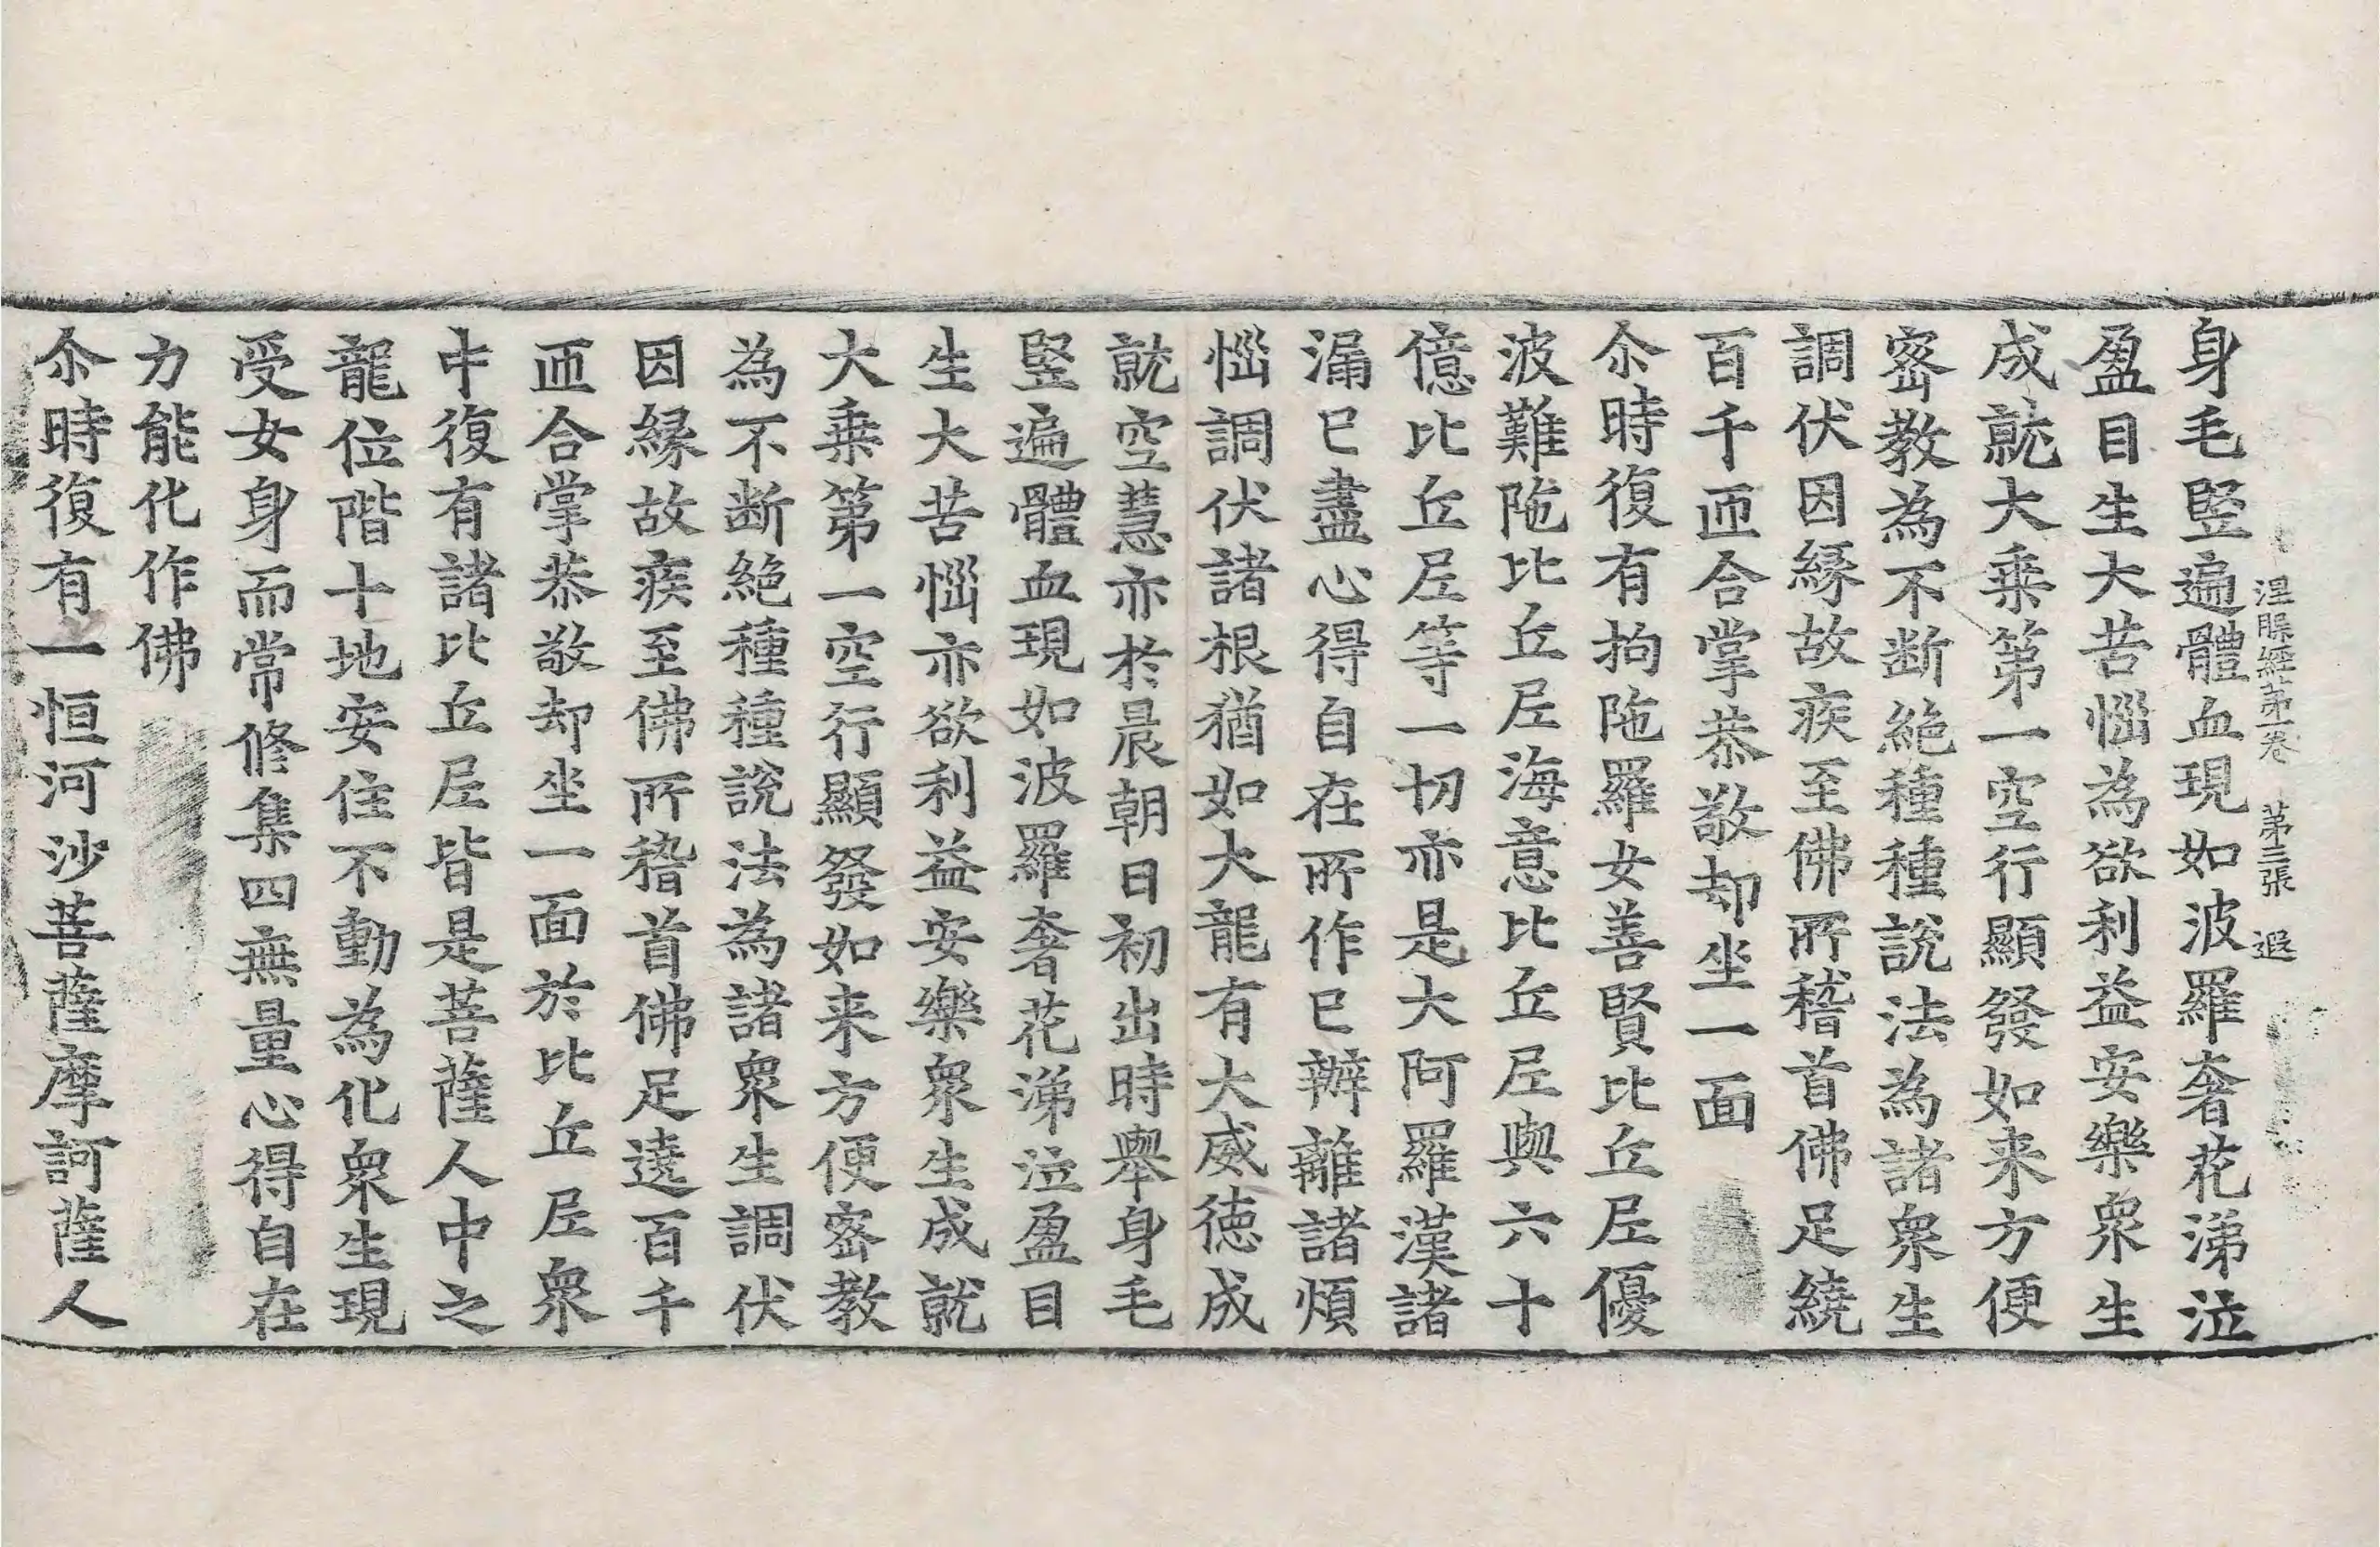 涅槃經第一卷　第三張　遐
身毛竪遍體血現如波羅奢花涕泣
盈目生大苦惱為欲利益安樂衆生
成就大乗第一空行顯發如来方便
密教為不断絶種種說法為諸衆生
調伏因緣故疾至佛所稽首佛足繞
百千匝合掌恭敬却坐一面
尒時復有拘陁羅女善賢比丘尼優
波難陁比丘尼海意比丘尼與六十
億比丘尼等一切亦是大阿羅漢諸
漏已盡心得自在所作已辦離諸煩
惱調伏諸根猶如大龍有大威德成
就空慧亦於晨朝日初出時舉身毛
竪遍體血現如波羅奢花涕泣盈目
生大苦惱亦欲利益安樂衆生成就
大乗第一空行顯發如来方便密教
為不断絶種種說法為諸衆生調伏
因緣故疾至佛所稽首佛足遶百千
匝合掌恭敬却坐一面於比丘尼衆
中復有諸比丘尼皆是菩薩人中之
龍位階十地安住不動為化衆生現
受女身而常修集四無量心得自在
力能化作佛
尒時復有一恒河沙菩薩摩訶薩人